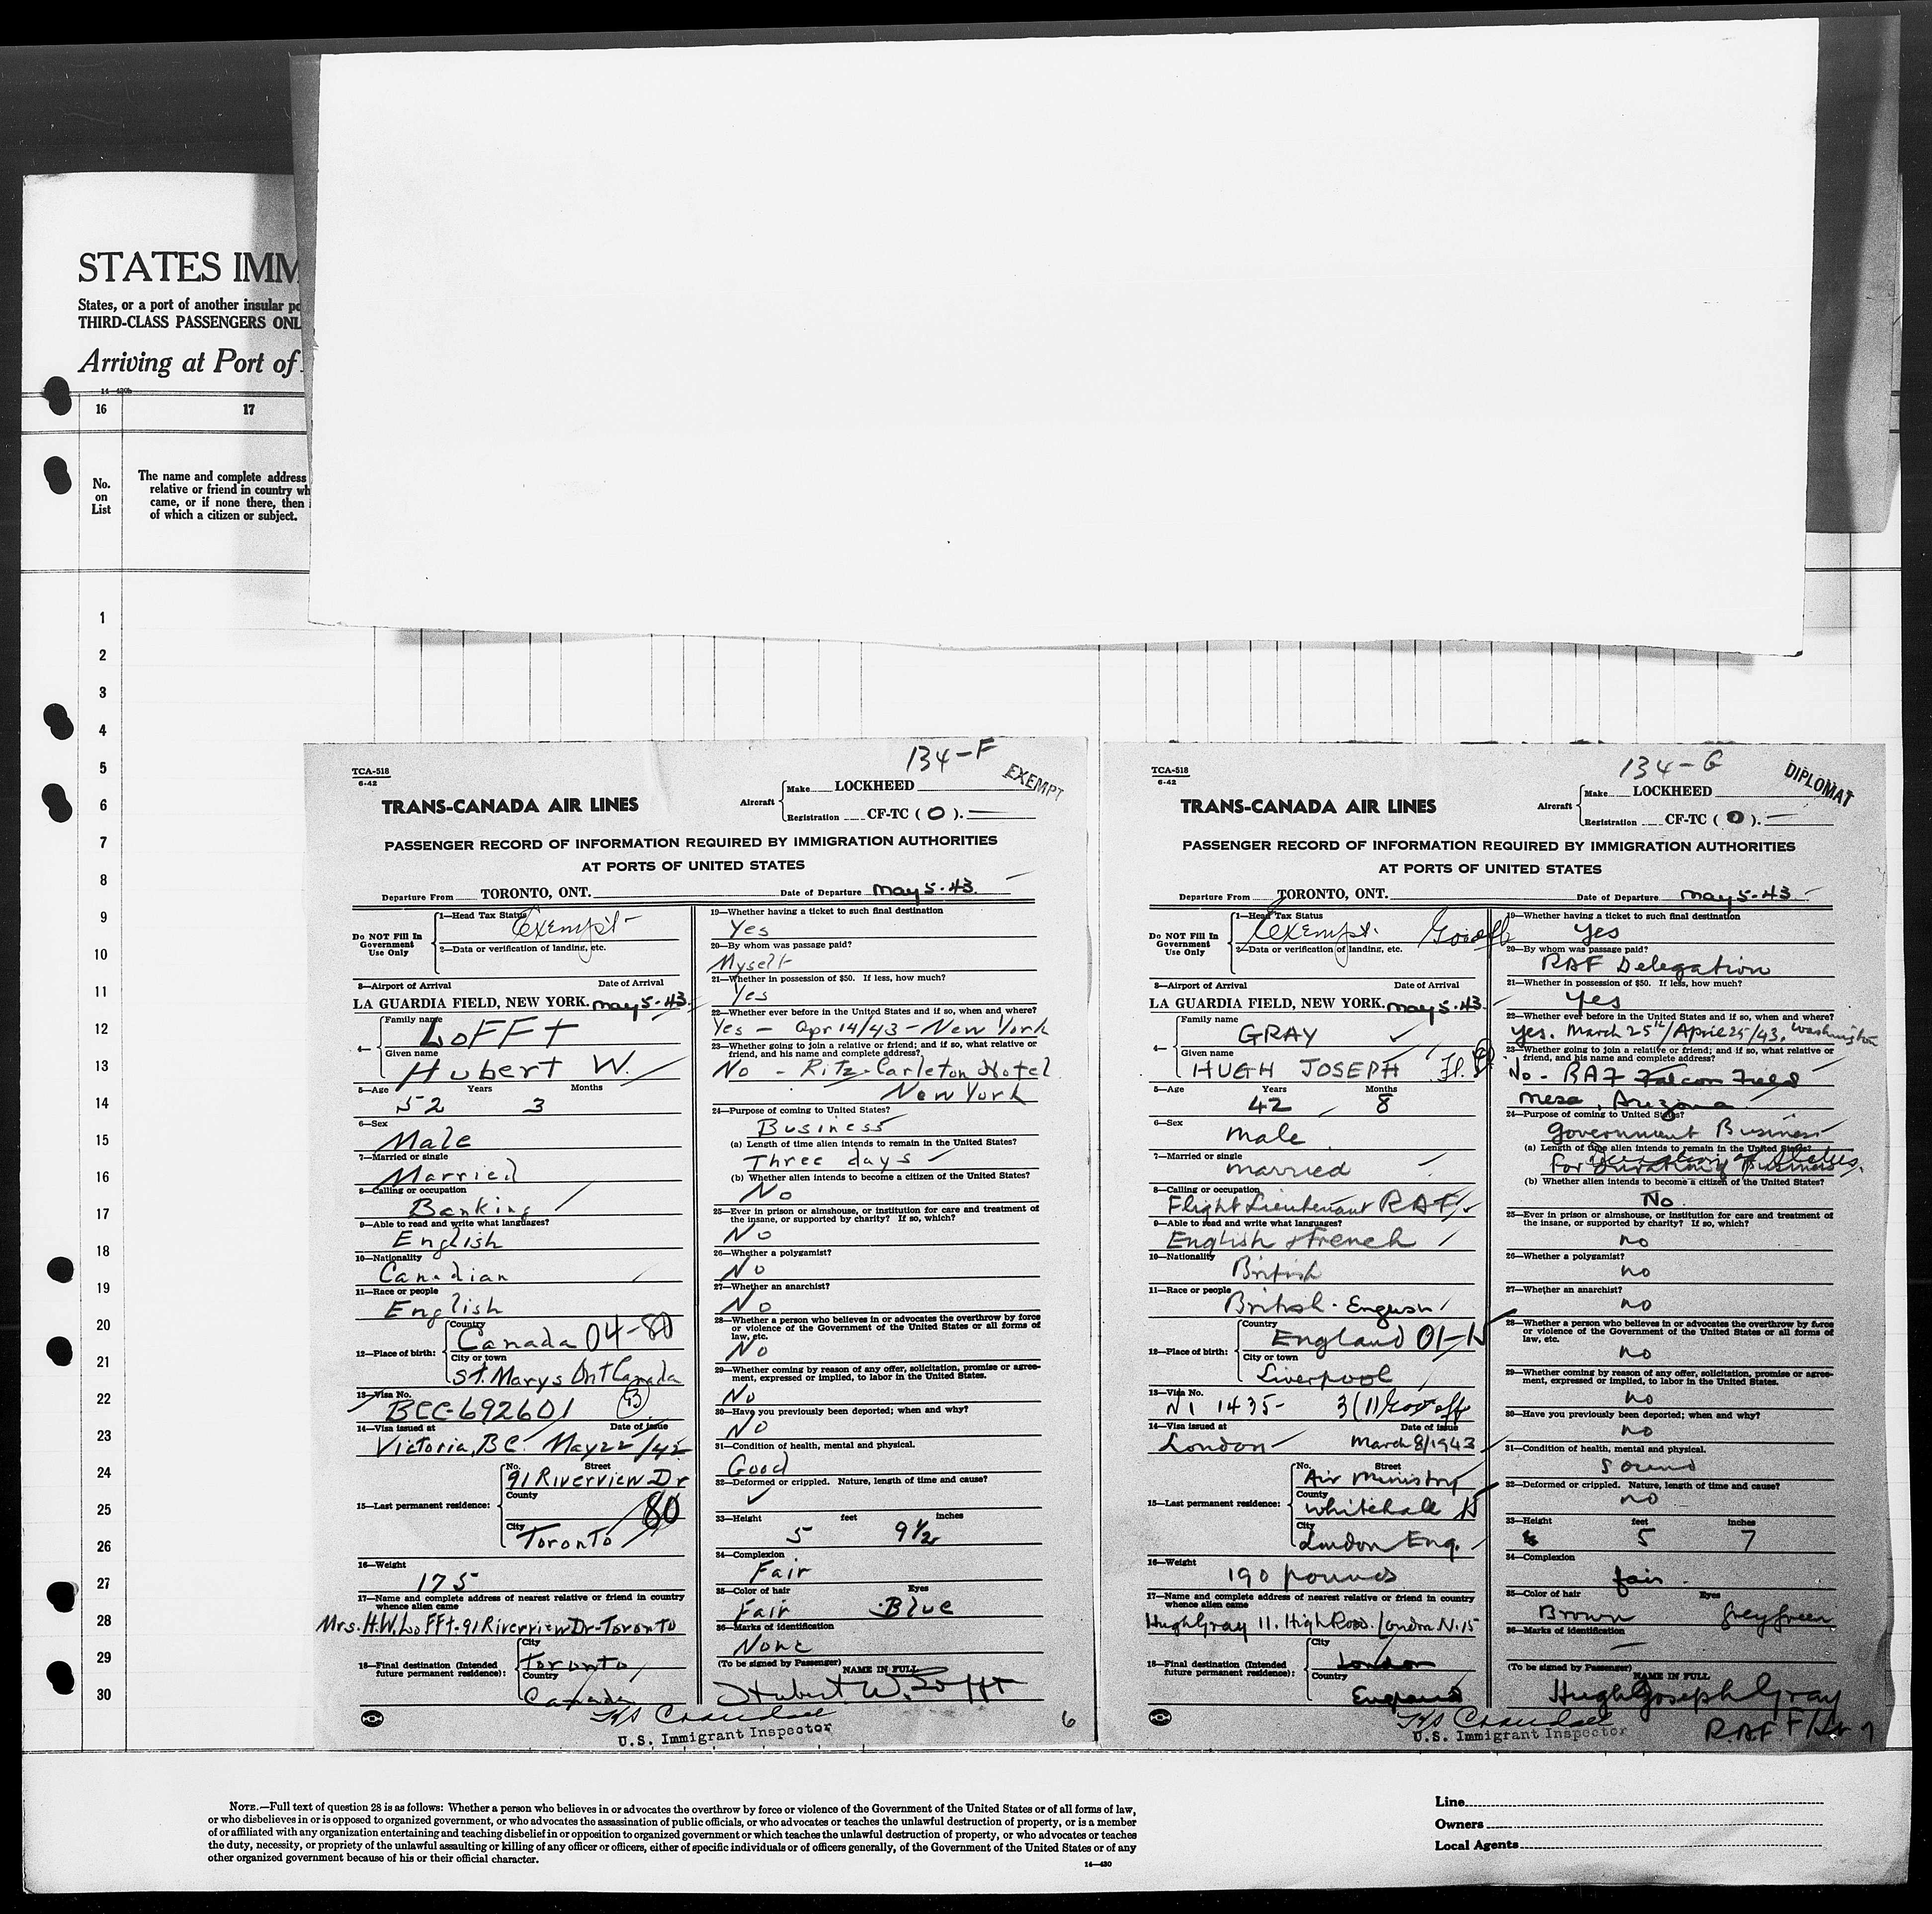 STATES IMM
States, or a port of another insular po
THIRD-CLASS PASSENGERS ONL
Arriving at Port of
14-430b
16 17
No.
on
List
The name and complete address
relative or friend in country wh
came, or if none there, then
of which a citizen or subject.
1
2
3
4
5
6
7
8
9
10
11
12
13
14
15
16
17
18
19
20
21
22
23
24
25
26
27
28
29
30
134-F
EXEMPT
TCA-518
6-42
TRANS-CANADA AIR LINES
Aircraft
Make LOCKHEED
Registration CF-TC ( O ).
PASSENGER RECORD OF INFORMATION REQUIRED BY IMMIGRATION AUTHORITIES
AT PORTS OF UNITED STATES
Departure From TORONTO, ONT. Date of Departure May 5-43.
Do NOT Fill In
Government
Use Only
1—Head Tax Status Exempt
2—Data or verification of landing, etc.
3—Airport of Arrival Date of Arrival
LA GUARDIA FIELD, NEW YORK. May 5-43.
4— Family name
LOFFT
Given name
Hubert W.
5—Age Years Months
52 3
6—Sex
Male
7—Married or single
Married
8—Calling or occupation
Banking
9—Able to read and write what languages?
English
10—Nationality
Canadian
11—Race or people
English
12—Place of birth:
Country
Canada 04-80
City or town
St. Marys Ont Canada
13—Visa No.
BCC-692601 (3)
14—Visa issued at Date of issue
Victoria, BC. May 22/42
15—Last permanent residence:
No. Street
91 Riverview Dr
County
80
City
Toronto
16—Weight
175
17—Name and complete address of nearest relative or friend in country
whence alien came
Mrs. H.W. LoFFt-91 Riverview Dr-Toronto
18—Final destination (Intended
future permanent residence):
City
Toronto
Country
Canada
19—Whether having a ticket to such final destination
Yes
20—By whom was passage paid?
Myself
21—Whether in possession of $50. If less, how much?
Yes
22—Whether ever before in the United States and if so, when and where?
Yes - Apr 14/43 - New York
23—Whether going to join a relative or friend; and if so, what relative or
friend, and his name and complete address?
No - Ritz-Carleton Hotel
New York
24—Purpose of coming to United States?
Business
(a) Length of time alien intends to remain in the United States?
Three days
(b) Whether alien intends to become a citizen of the United States?
No
25—Ever in prison or almshouse, or institution for care and treatment of
the insane, or supported by charity? If so, which?
No
26—Whether a polygamist?
No
27—Whether an anarchist?
No
28—Whether a person who believes in or advocates the overthrow by force
or violence of the Government of the United States or all forms of
law, etc.
No
29—Whether coming by reason of any offer, solicitation, promise or agree-
ment, expressed or implied, to labor in the United States.
No
30—Have you previously been deported; when and why?
No
31—Condition of health, mental and physical.
Good
32—Deformed or crippled. Nature, length of time and cause?
33—Height feet inches
5 9½
34—Complexion
Fair
35—Color of hair Eyes
Fair Blue
36—Marks of identification
None
(To be signed by Passenger) NAME IN FULL
Hubert W. Lofft
U.S. Immigrant Inspector
6
134-G
DIPLOMAT
TCA-518
6-42
TRANS-CANADA AIR LINES
Aircraft
Make LOCKHEED
Registration CF-TC ( O ).
PASSENGER RECORD OF INFORMATION REQUIRED BY IMMIGRATION AUTHORITIES
AT PORTS OF UNITED STATES
Departure From TORONTO, ONT. Date of Departure May 5-43.
Do NOT Fill In
Government
Use Only
1—Head Tax Status
Exempt.
2—Data or verification of landing, etc.
3—Airport of Arrival Date of Arrival
LA GUARDIA FIELD, NEW YORK. May 5-43.
4— Family name
GRAY
Given name
HUGH JOSEPH
5—Age Years Months
42 8
6—Sex
male
7—Married or single
married
8—Calling or occupation
Flight Lieutenant RAF
9—Able to read and write what languages?
English & French
10—Nationality
British
11—Race or people
British - English
12—Place of birth:
Country
England 01-15
City or town
Liverpool
13—Visa No.
N1 1435- 3(11)
14—Visa issued at Date of issue
London March 8/1943
15—Last permanent residence:
No. Street
Air Ministry
County
Whitehall 15
City
London Eng.
16—Weight
190 pounds
17—Name and complete address of nearest relative or friend in country
whence alien came
Hugh Gray 11. High Road. London N.15
18—Final destination (Intended
future permanent residence):
City
London
Country
England
19—Whether having a ticket to such final destination
Yes
20—By whom was passage paid?
RAF Delegation
21—Whether in possession of $50. If less, how much?
Yes
22—Whether ever before in the United States and if so, when and where?
Yes. March 25th/April 25/43. Washington
23—Whether going to join a relative or friend; and if so, what relative or
friend, and his name and complete address?
No - RAF Falcon Field
Mesa, Arizona.
24—Purpose of coming to United States?
Government Business
(a) Length of time alien intends to remain in the United States?
For Duration of Status.
(b) Whether alien intends to become a citizen of the United States?
No.
25—Ever in prison or almshouse, or institution for care and treatment of
the insane, or supported by charity? If so, which?
no
26—Whether a polygamist?
no
27—Whether an anarchist?
no
28—Whether a person who believes in or advocates the overthrow by force
or violence of the Government of the United States or all forms of
law, etc.
no
29—Whether coming by reason of any offer, solicitation, promise or agree-
ment, expressed or implied, to labor in the United States.
no
30—Have you previously been deported; when and why?
no
31—Condition of health, mental and physical.
sound
32—Deformed or crippled. Nature, length of time and cause?
no
33—Height feet inches
5 7
34—Complexion
fair.
35—Color of hair Eyes
Brown Grey green
36—Marks of identification
(To be signed by Passenger) NAME IN FULL
Hugh Joseph Gray
R.A.F. F/Lt
U.S. Immigrant Inspector
7
NOTE.—Full text of question 28 is as follows: Whether a person who believes in or advocates the overthrow by force or violence of the Government of the United States or of all forms of law,
or who disbelieves in or is opposed to organized government, or who advocates the assassination of public officials, or who advocates or teaches the unlawful destruction of property, or is a member
of or affiliated with any organization entertaining and teaching disbelief in or opposition to organized government or which teaches the unlawful destruction of property, or who advocates or teaches
the duty, necessity, or propriety of the unlawful assaulting or killing of any officer or officers, either of specific individuals or of officers generally, of the Government of the United States or of any
other organized government because of his or their official character.
14-430
Line
Owners
Local Agents